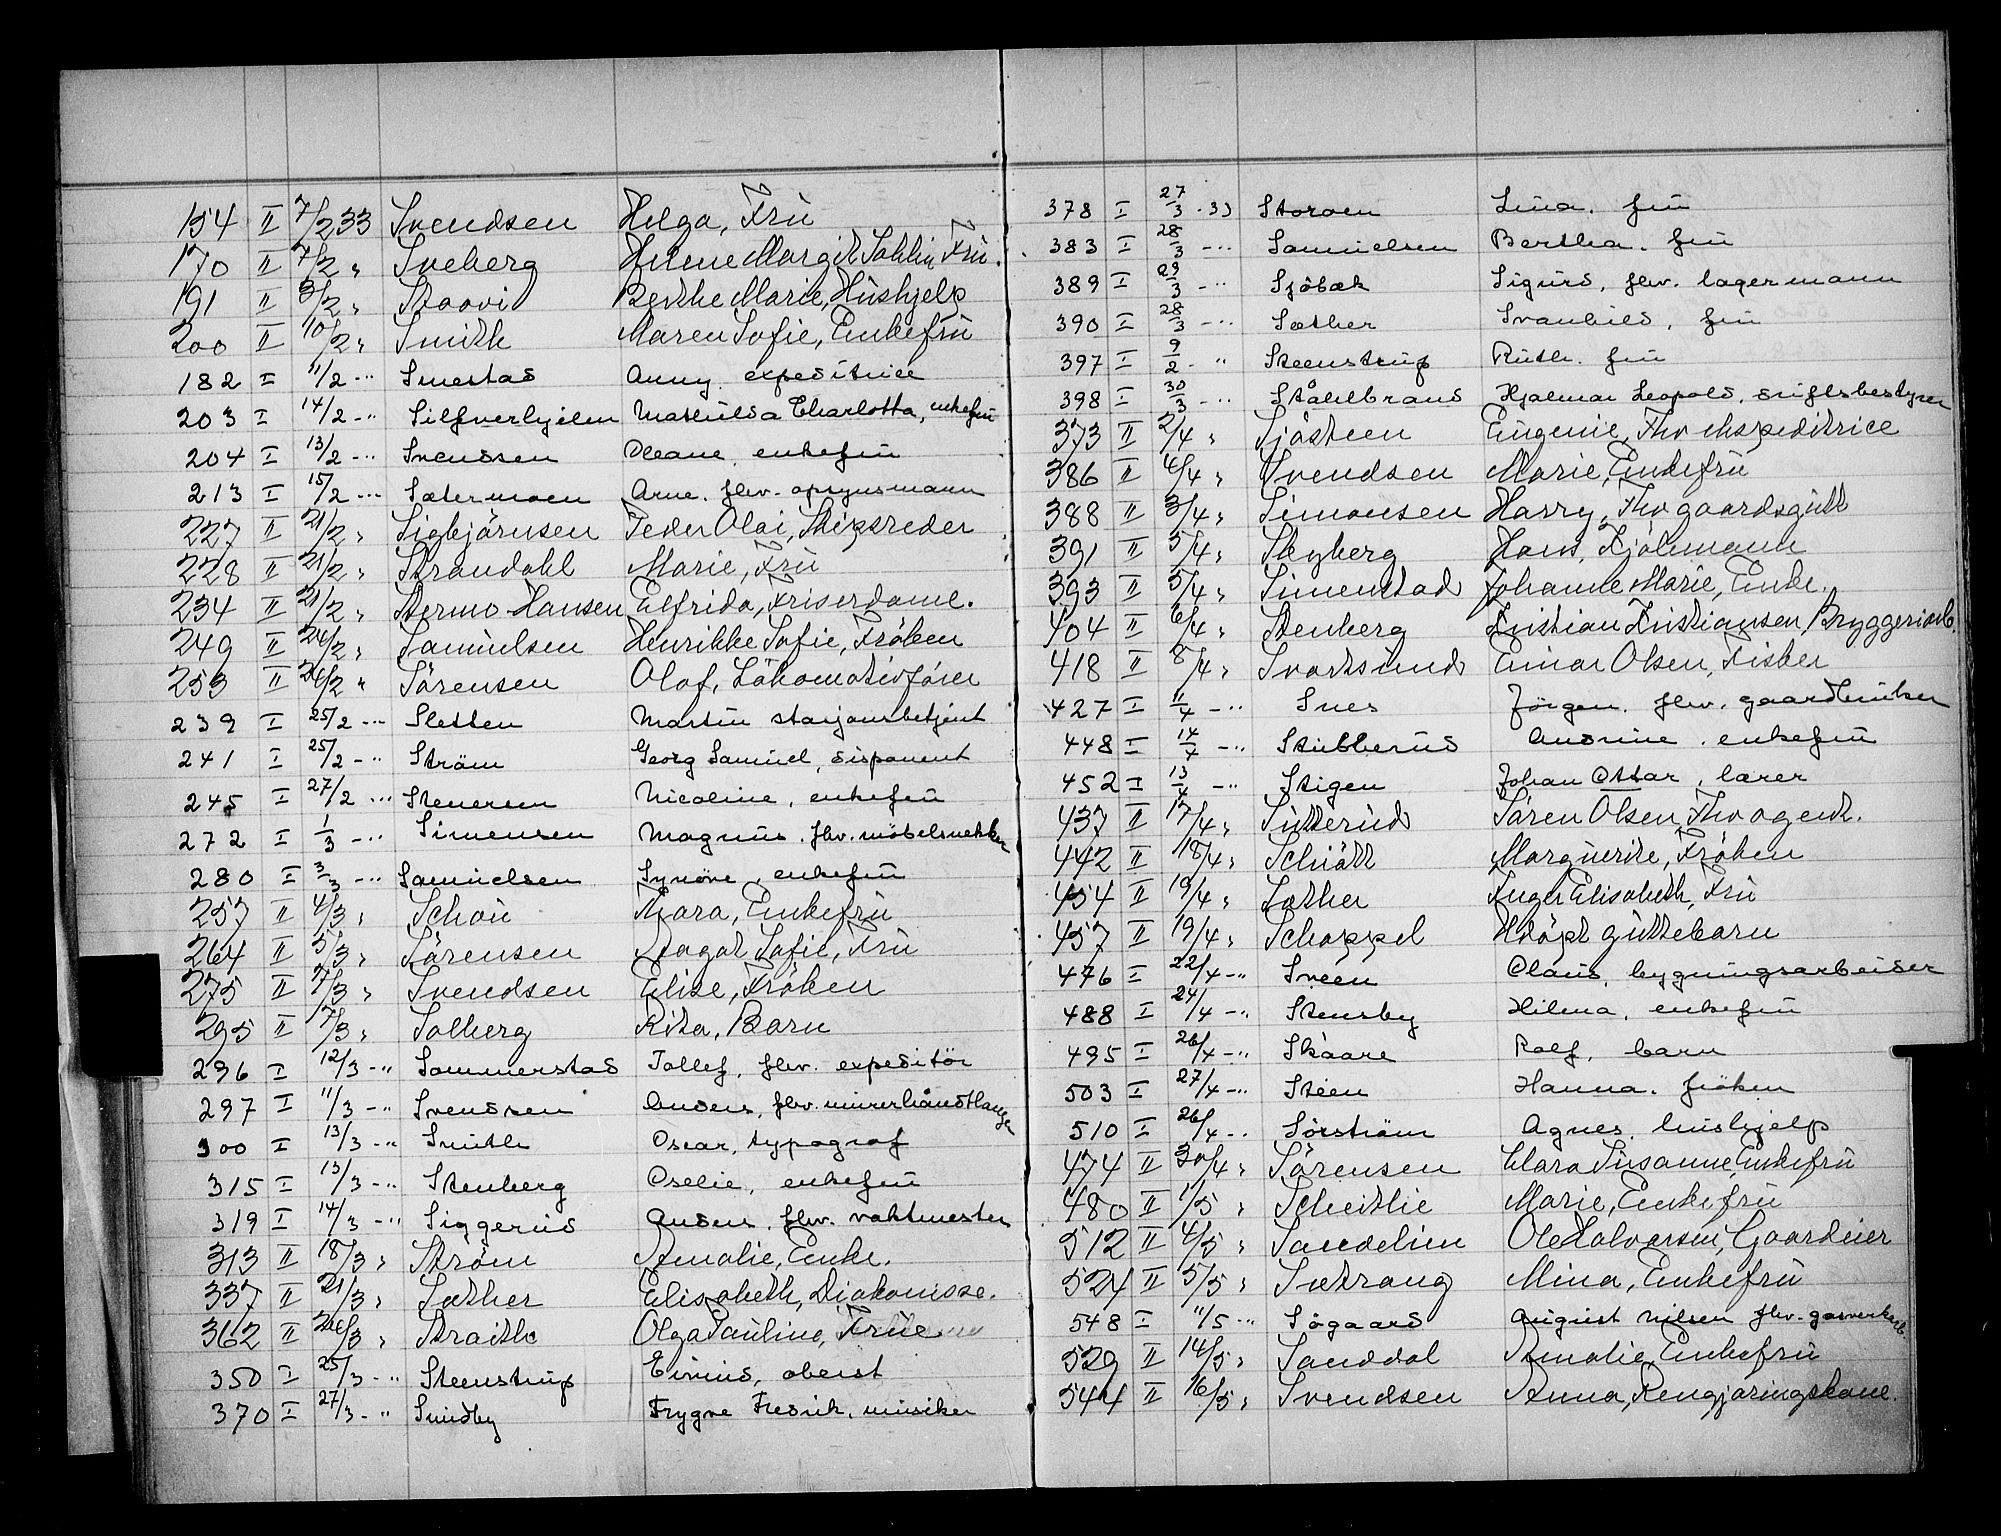 154 II 7/2 33 Svendsen Helga, Frü
170 II 7/2 " Sveberg Helene Margit Sohlin, Frü.
191 II 8/2 " Staavi Berthe Marie, Hüshjelp
200 II 10/2 " Smith Maren Sofie, Enkefrü
182 I 11/2 -" Smestad Anny, expeditrice
203 I 14/2 -" Silfverhjelm Mathilda Charlotta, enkefrü
204 I 13/2 -" Svendsen Oleane, enkefrü
213 I 15/2 -" Sætermoen Arne, fhv. opsynsmann
227 II 21/2 " Sigbjørnsen Peder Olai, Skipsreder
228 II 21/2 " Strandahl Marie, Frü
234 II 21/2 " Stermo-Hansen Elfrida, Friserdame.
249 II 24/2 " Samüelsen Henrikke Sofie, Frøken
253 II 26/2 " Sørensen Olaf, Lokomotivfører
239 I 25/2 -" Sletten Martin stasjonsbetjent
241 I 25/2 -" Strøm Georg Samuel, disponent
245 I 27/2 -" Stenersen Nicoline, enkefrü
272 I 1/3 -" Simensen Magnus, fhv. møbelsnekker
280 I 3/3 -" Samuelsen Synøve, enkefrü
257 II 4/3 " Schou Thora, Enkefrü
264 II 5/3 " Sørensen Dagot Sofie, Frü
275 II 7/3 " Svendsen Elise, Frøken
295 II 7/3 " Solberg Rita, Barn
296 I 12/3 -" Sommerstad Tollef, fhv. expeditør
297 I 11/3 -" Svendsen Anders, fhv. murerhåndtlanger
300 I 13/3 -" Smith Oscar, typograf
315 I 13/3 -" Stenberg Oselie, enkefrü
319 I 14/3 -" Siggerud Anders, fhv. vaktmester
313 II 18/3 " Strøm Amalie, Enke.
337 II 21/3 " Sæther Elisabeth, Diakonisse.
362 II 26/3 " Straith Olga Pauline, Frü
350 I 25/3 -" Steenstrup Eivind, oberst
370 I 27/3 -" Sundby Trygve Fredrik, musiker
378 I 27/3 -33 Storoen Lina, frü
383 I 28/3 -" Samuelsen Bertha, frü
389 I 29/3 -" Sjøbæk Sigurd, fhv. lagermann
390 I 28/3 -" Sæther Svanhild, frü
397 I 9/2 -" Steenstrup Ruth, frü
398 I 30/3 -" Stålhbrand Hjalmar Leopold, driftsbestyrer
373 II 2/4 " Sjøsteen Eugenie, Fhv ekspeditrice
386 II 4/4 " Svendsen Marie, Enkefrü
388 II 3/4 " Simonsen Harry, Fhv gaardsgütt
391 II 5/4 " Skyberg Hans, Kjølemann
393 II 5/4 " Simenstad Johanne Marie, Enke.
404 II 6/4 " Stenberg Kristian Kristiansen, Bryggeriarb.
418 II 8/4 " Svartsünd Einar Olsen, Fisker
427 I 11/4 -" Snes Jørgen, fhv. gaardbruker
448 I 14/4 -" Stubberud Andrine, enkefrü
452 I 13/4 -" Stigen Johan Ottar, lærer
437 II 17/4 " Sütterüd Søren Olsen, Fhv agent.
442 II 18/4 " Schiøtt Marguerite, Frøken
454 II 19/4 " Sæther Inger Elisabeth, Frü
457 II 19/4 " Schappel Udøpt güttebarn
476 I 22/4 -" Sveen Claus, bygningsarbeider
488 I 24/4 -" Stensby Hilma, enkefrü
495 I 26/4 -" Skaare Rolf, barn
503 I 27/4 -" Steen Hanna, frøken
510 I 26/4 -" Sørstrøm Agnes, hushjelp
474 II 30/4 " Sørensen Clara Susanne, Enkefrü
480 II 1/5 " Scheitlie Marie, Enkefrü
512 II 4/5 " Sandelien Ole Halvorsen, Gaardeier
524 II 5/5 " Sætrang Mina, Enkefrü
548 I 11/5 -" Søgaard August Nilsen fhv. gasverksarb.
529 II 14/5 " Sanddal Amalie, Enkefrü
544 II 16/5 " Svendsen Anna, Rengjøringskone.